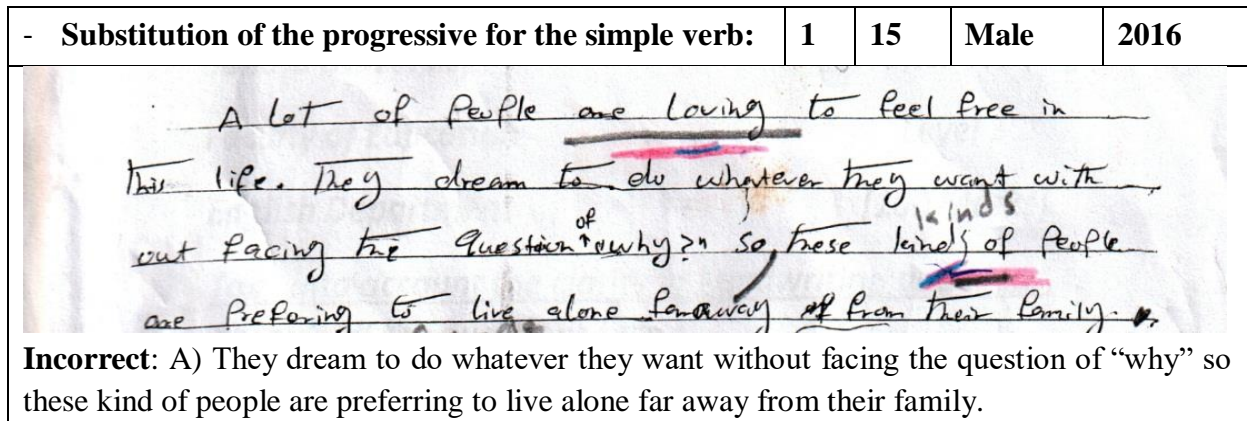 - Substitution of the progressive for the simple verb: 1 15 Male 2016
A lot of people are loving to feel free in
this life. They dream to do whatever they want with
kinds
of
out facing the question "why?" so, these kinds of people
are prefering to live alone faraway from their family.
Incorrect: A) They dream to do whatever they want without facing the question of “why” so
these kind of people are preferring to live alone far away from their family.